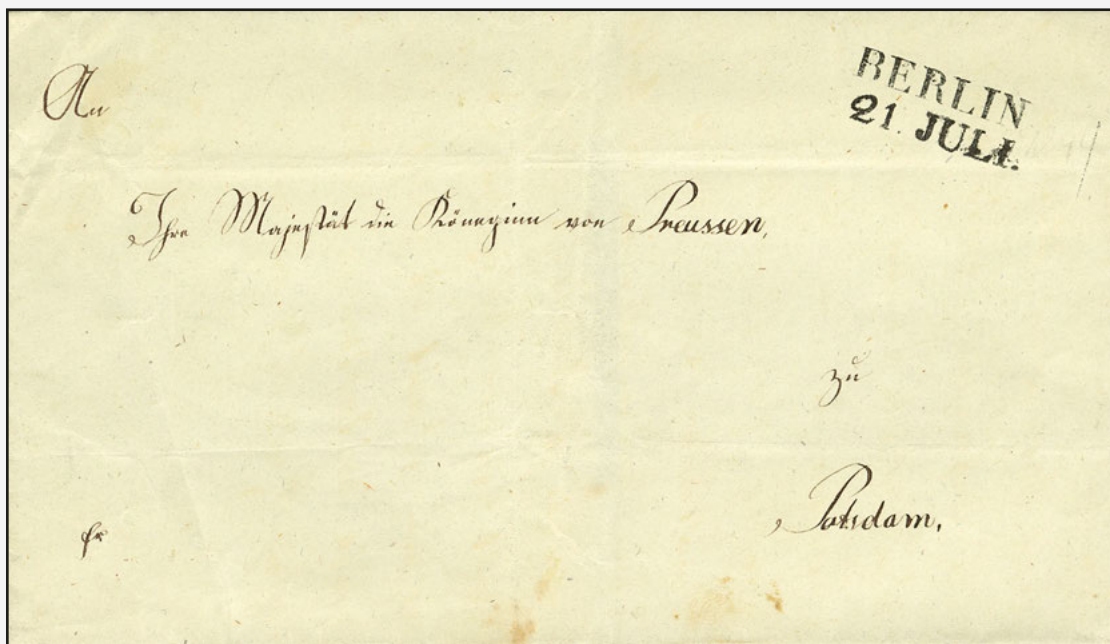 BERLIN
21. JULI.
An
Ihre Majestät die Königinn von Preussen,
zu
Potsdam,
fr